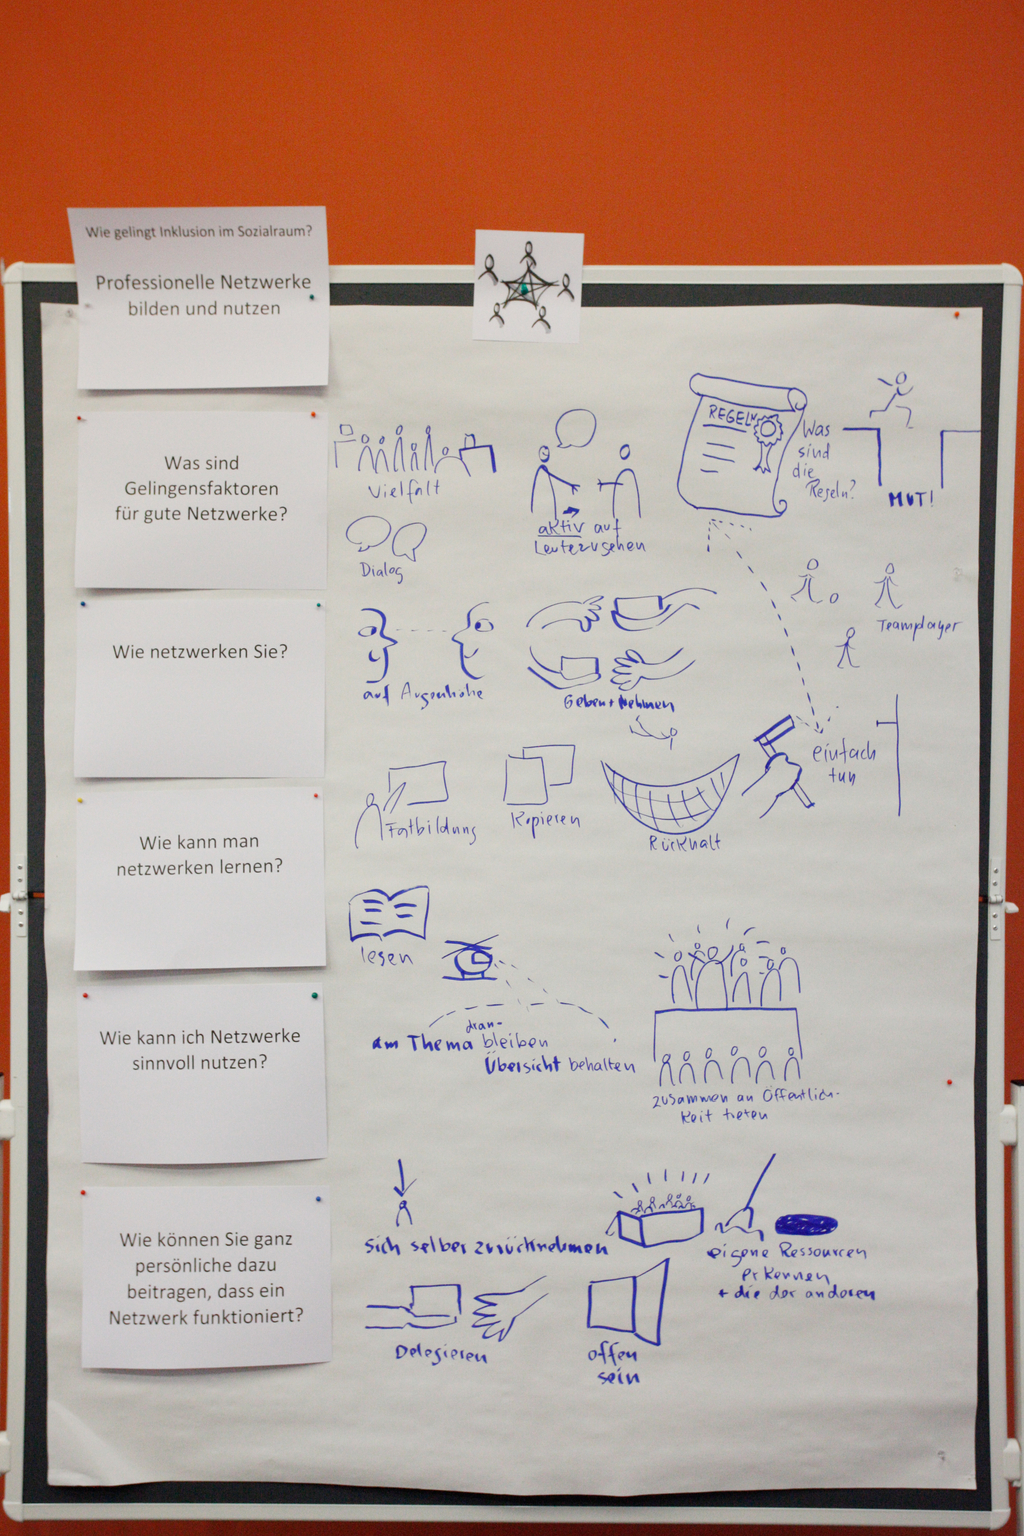 Wie gelingt Inklusion im Sozialraum?
Professionelle Netzwerke
bilden und nutzen
Was sind
Gelingensfaktoren
für gute Netzwerke?
Vielfalt
aktiv auf
Leutezugehen
REGELN
Was
sind
die
Regeln?
MUT!
Dialog
Teamplayer
Wie netzwerken Sie?
auf Augenhöhe
Geben + Nehmen
einfach
tun
Wie kann man
netzwerken lernen?
Fortbildung
Kopieren
Rückhalt
lesen
Wie kann ich Netzwerke
sinnvoll nutzen?
dran-
am Thema bleiben
Übersicht behalten
zusammen an Öffentlich-
keit treten
Wie können Sie ganz
persönliche dazu
beitragen, dass ein
Netzwerk funktioniert?
sich selber zurücknehmen
eigene Ressourcen
erkennen
+ die der anderen
Delegieren
offen
sein